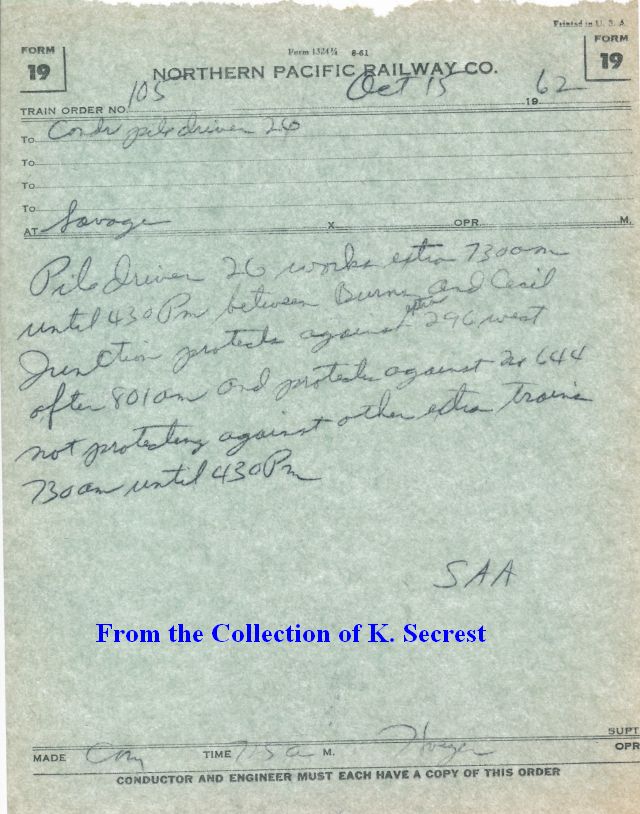 Printed in U. S. A.
Form 1324½ 8-61
FORM 19
FORM 19
NORTHERN PACIFIC RAILWAY CO.
Oct 15 1962
TRAIN ORDER NO. 105
To Condr pile driver 26
To
To
To
AT Savage X OPR. M.
Pile driver 26 works extra 730am
until 430 Pm between Burns and Cecil
Junction protects against extra 296 west
after 801am and protects against 644
not protecting against other extra trains
730 am until 430 Pm
SAA
From the Collection of K. Secrest
SUPT
MADE Com TIME 715 a M. OPR
CONDUCTOR AND ENGINEER MUST EACH HAVE A COPY OF THIS ORDER